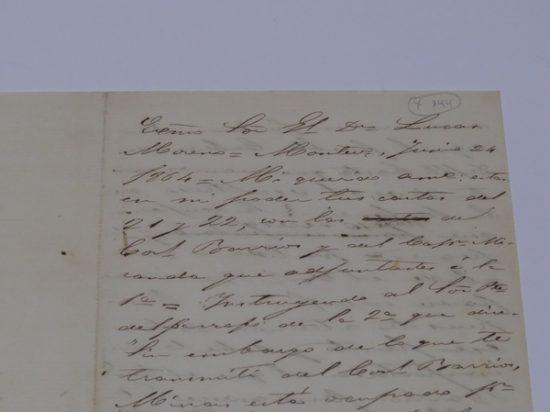 Exmo Sor Gl Dn Lucas
Moreno = Montevo, Junio 24
1864 = Mi querido amo: están
en mi poder tus cartas del
21 y 22, con las de
Corl Barrios y del Capn Mi-
randa que adjuntastes á la
1ª = Instruyendo al Sor
del parrafo de la 2ª que dice
"Sin embargo de lo que te
transmití del Corl Barrios,
Minas está ocupado pr